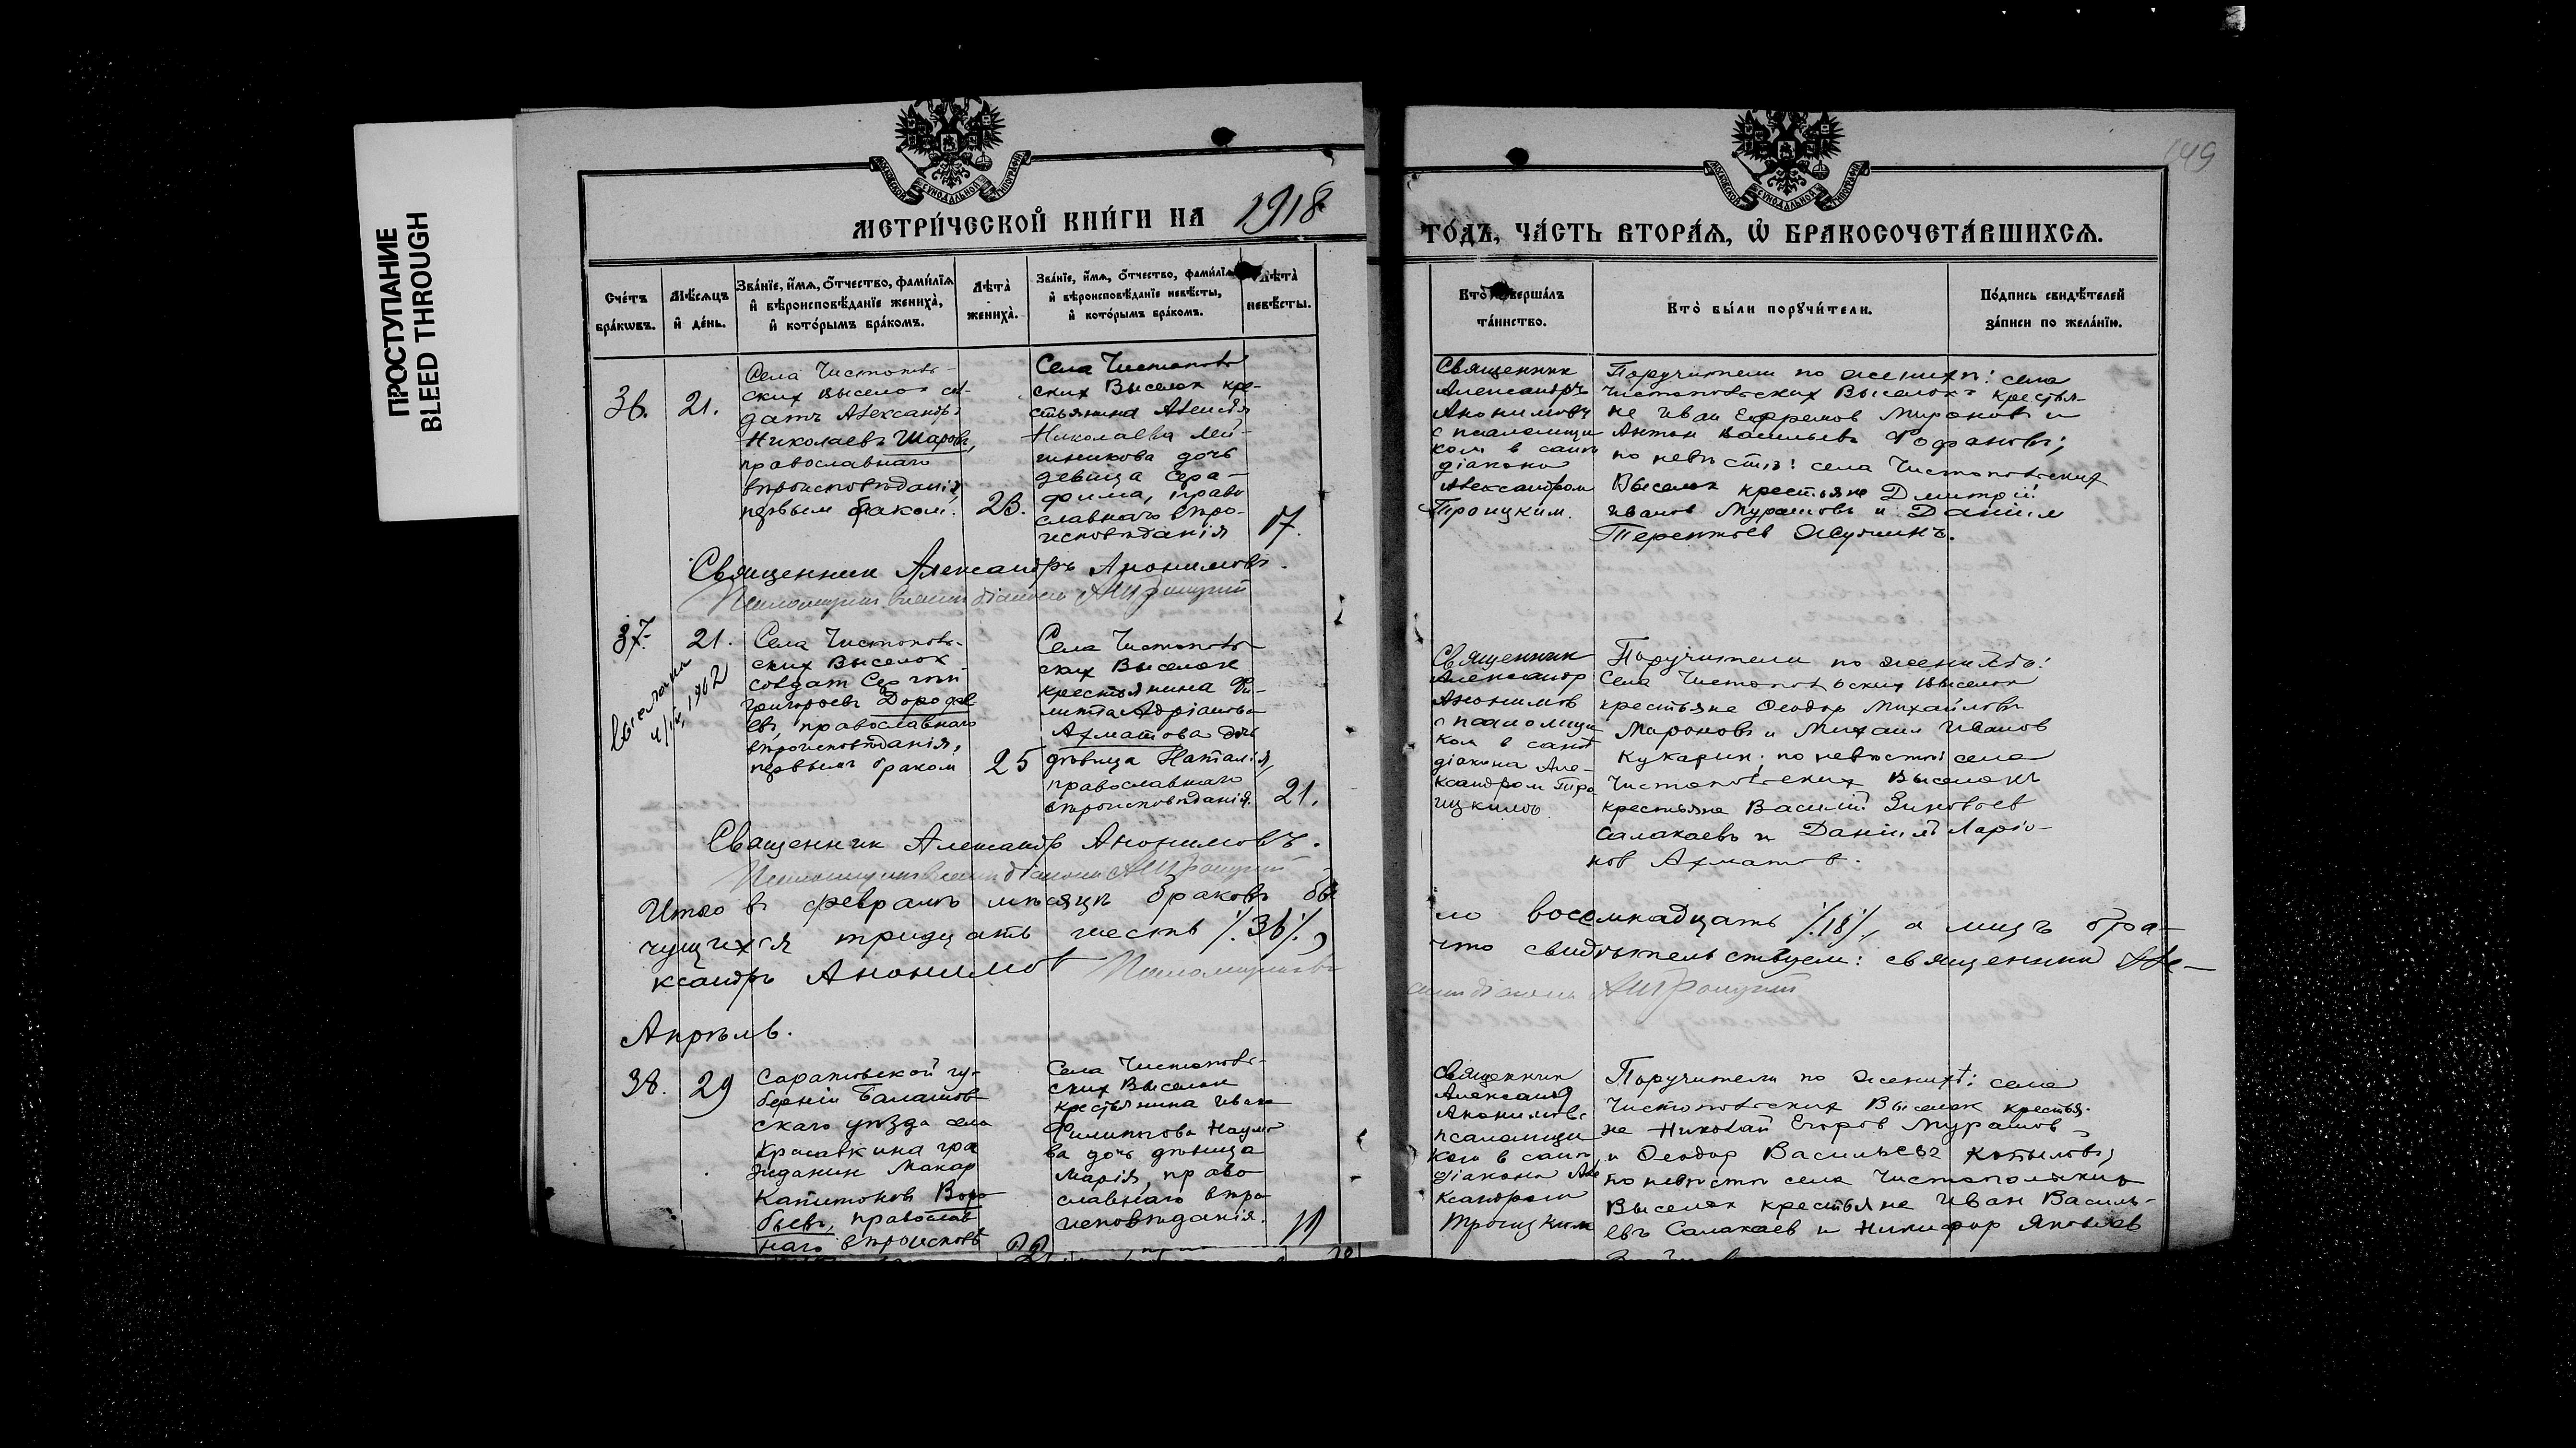 ПРОСТУПАНИЕ
BLEED THROUGH
149
МОСКОВСКОЙ СѴНОДАЛЬНОЙ ТИПОГРАФІИ
МОСКОВСКОЙ СѴНОДАЛЬНОЙ ТИПОГРАФІИ
МЕТРИ́ЧЕСКОЙ КНИ́ГИ НА 1918
ГО́ДЪ, ЧА́СТЬ ВТОРА́Я, Ѡ БРАКОСОЧЕТА́ВШИХСЯ.
Сче́тъ
бра́кѡвъ.
Мѣ́сяцъ
и де́нь.
Зва́нїе, и́мя, о́тчество, фами́лїя
и вѣроисповѣ́данїе жениха̀,
и кото́рымъ бра́комъ.
Лѣта̀
жениха̀.
Зва́нїе, и́мя, о́тчество, фами́лїя
и вѣроисповѣ́данїе невѣ́сты,
и кото́рымъ бра́комъ.
Лѣта̀
невѣ́сты.
Кто̀ соверша́лъ
та́инство.
Кто̀ бы́ли порꙋчи́тели.
По́дпись свидѣ́телей
за́писи по жела́нїю.
36.
21.
Села Чистопов-
ских Выселок сол-
датъ Александръ
Николаевъ Шаровъ,
православнаго
вѣроисповѣданія,
первым браком.
23.
Села Чистопов-
ских Выселок кре-
стьянина Алексѣя
Николаева
дочь
девица Сера-
фима, право
славнаго вѣро-
исповѣданія
17.
Священник
Александръ
Анонимовъ
с псаломщи
ком в санѣ
діакона
Александром
Троицким.
Поручители по женихѣ: села
Чистоповских Выселокъ крестья-
не Иван Ефремов Миронов и
Антон Васильевъ Фофановъ;
по невѣстѣ: села Чистоповских
Выселок крестьяне Дмитрій
Иванов Мурашовъ и Даніил
Терентьев
Священник Александръ Анонимовъ.
Псаломщикъ в санѣ діакона А. Троицкій
37.
21.
4/IV, 1962
Села Чистопов-
ских Выселок
солдат Сергѣй
Григорьевъ Дорофе
евъ, православнаго
вѣроисповѣданія,
первымъ браком
25
Села Чистопов-
ских Выселок
крестьянина Фи-
липпа Адріанова
Ахматова дочь
дѣвица Наталія,
православнаго
вѣроисповѣданія.
21.
Священник
Александр
Анонимов
с псаломщи
ком в санѣ
діакона Але-
ксандром Трои
цкимъ
Поручители по женихѣ:
Села Чистоповских Выселок
крестьяне Ѳеодор Михайловъ
Мироновъ и Михаил Иванов
Кукарин; по невѣстѣ: села
Чистоповских Выселокъ
крестьяне Василій Зиновьев
Салакаевъ и Даніилъ Ларіо-
нов Ахматов.
Священник Александр Анонимовъ.
Псаломщикъ в санѣ діакона А. Троицкій
Итого въ февралѣ мѣсяцѣ браковъ бы
ло восемнадцать /.18./, а лицъ бра-
чущихся тридцать шесть /.36./,
что свидѣтельствуем: священник Але-
ксандръ Анонимов Псаломщикъ в
санѣ діакона А. Троицкій
Апрѣль.
38.
29
Саратовской гу-
берніи Балашов
скаго уѣзда села
Красавкина гра
жданин Макар
Капитонов Воро
бьевъ, православ
наго вѣроисповѣ
22
Села Чистопов-
ских Выселок
крестьянина Ивана
Филиппова Наумо
ва дочь дѣвица
Марія, право
славнаго вѣро
исповѣданія.
Священник
Александр
Анонимовъ с
псаломщи
ком в санѣ
діакона Але
ксандром
Троицким
Поручители по женихѣ: села
Чистоповских Выселок крестья-
не Николай Егоров Мурашов
и Ѳеодор Васильевъ Копыловъ;
по невѣстѣ села Чистопольских
Выселок крестьяне Иван Василь-
евъ Салакаев и Никифор Яковлев